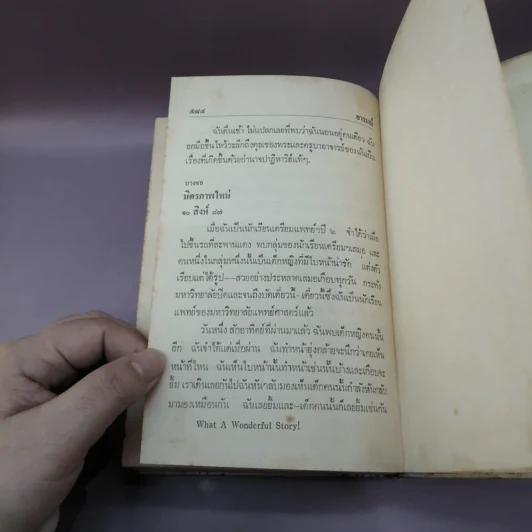 ๕๘๔ อารมณ์
ฉันตื่นเช้า ไม่แปลกเลยที่พบว่าฉันนอนอยู่คนเดียว ฉัน
ยกมือขึ้นไหว้ระลึกถึงคุณของพระและครูบาอาจารย์ของฉันเรียน
เรื่องที่เกิดขึ้นด้วยอำนาจปาฏิหาริย์แท้ๆ.
บางขอ
มิตรภาพใหม่
๑๐ สิงห์ ๘๗
เมื่อฉันเป็นนักเรียนเตรียมแพทย์ฯปี ๒ จำได้ว่าเมื่อ
ไปขึ้นรถที่สะพานแดง พบกลุ่มของนักเรียนเตรียมฯเสมอ และ
คนหนึ่งในกลุ่มหนึ่งนั้นเป็นเด็กหญิงที่มีใบหน้าน่ารัก แต่งตัว
เรียบแต่ได้รูป—สวยอย่างประหลาดเสมอเกือบทุกวัน กระทั่ง
มหาวิทยาลัยปิดและจนถึงบัดเดี๋ยวนี้ เดี๋ยวนี้ซึ่งฉันเป็นนักเรียน
แพทย์ของมหาวิทยาลัยแพทย์ศาสตร์แล้ว
วันหนึ่ง สักอาทิตย์ที่ผ่านมาแล้ว ฉันพบเด็กหญิงคนนั้น
อีก ฉันจำได้แต่เมื่อผ่าน ฉันทำหน้ายุ่งคล้ายจะนึกว่าเคยเห็น
หน้าที่ไหน ฉันเห็นใบหน้านั้นทำหน้าเช่นนั้นบ้างและเกือบจะ
ยิ้ม เราเดินเลยกันไปฉันหันกลับมองเห็นเด็กคนนั้นกำลังหันกลับ
มามองเหมือนกัน ฉันเลยยิ้มและ—เด็กคนนั้นก็เลยยิ้มเช่นกัน
What A Wonderful Story!